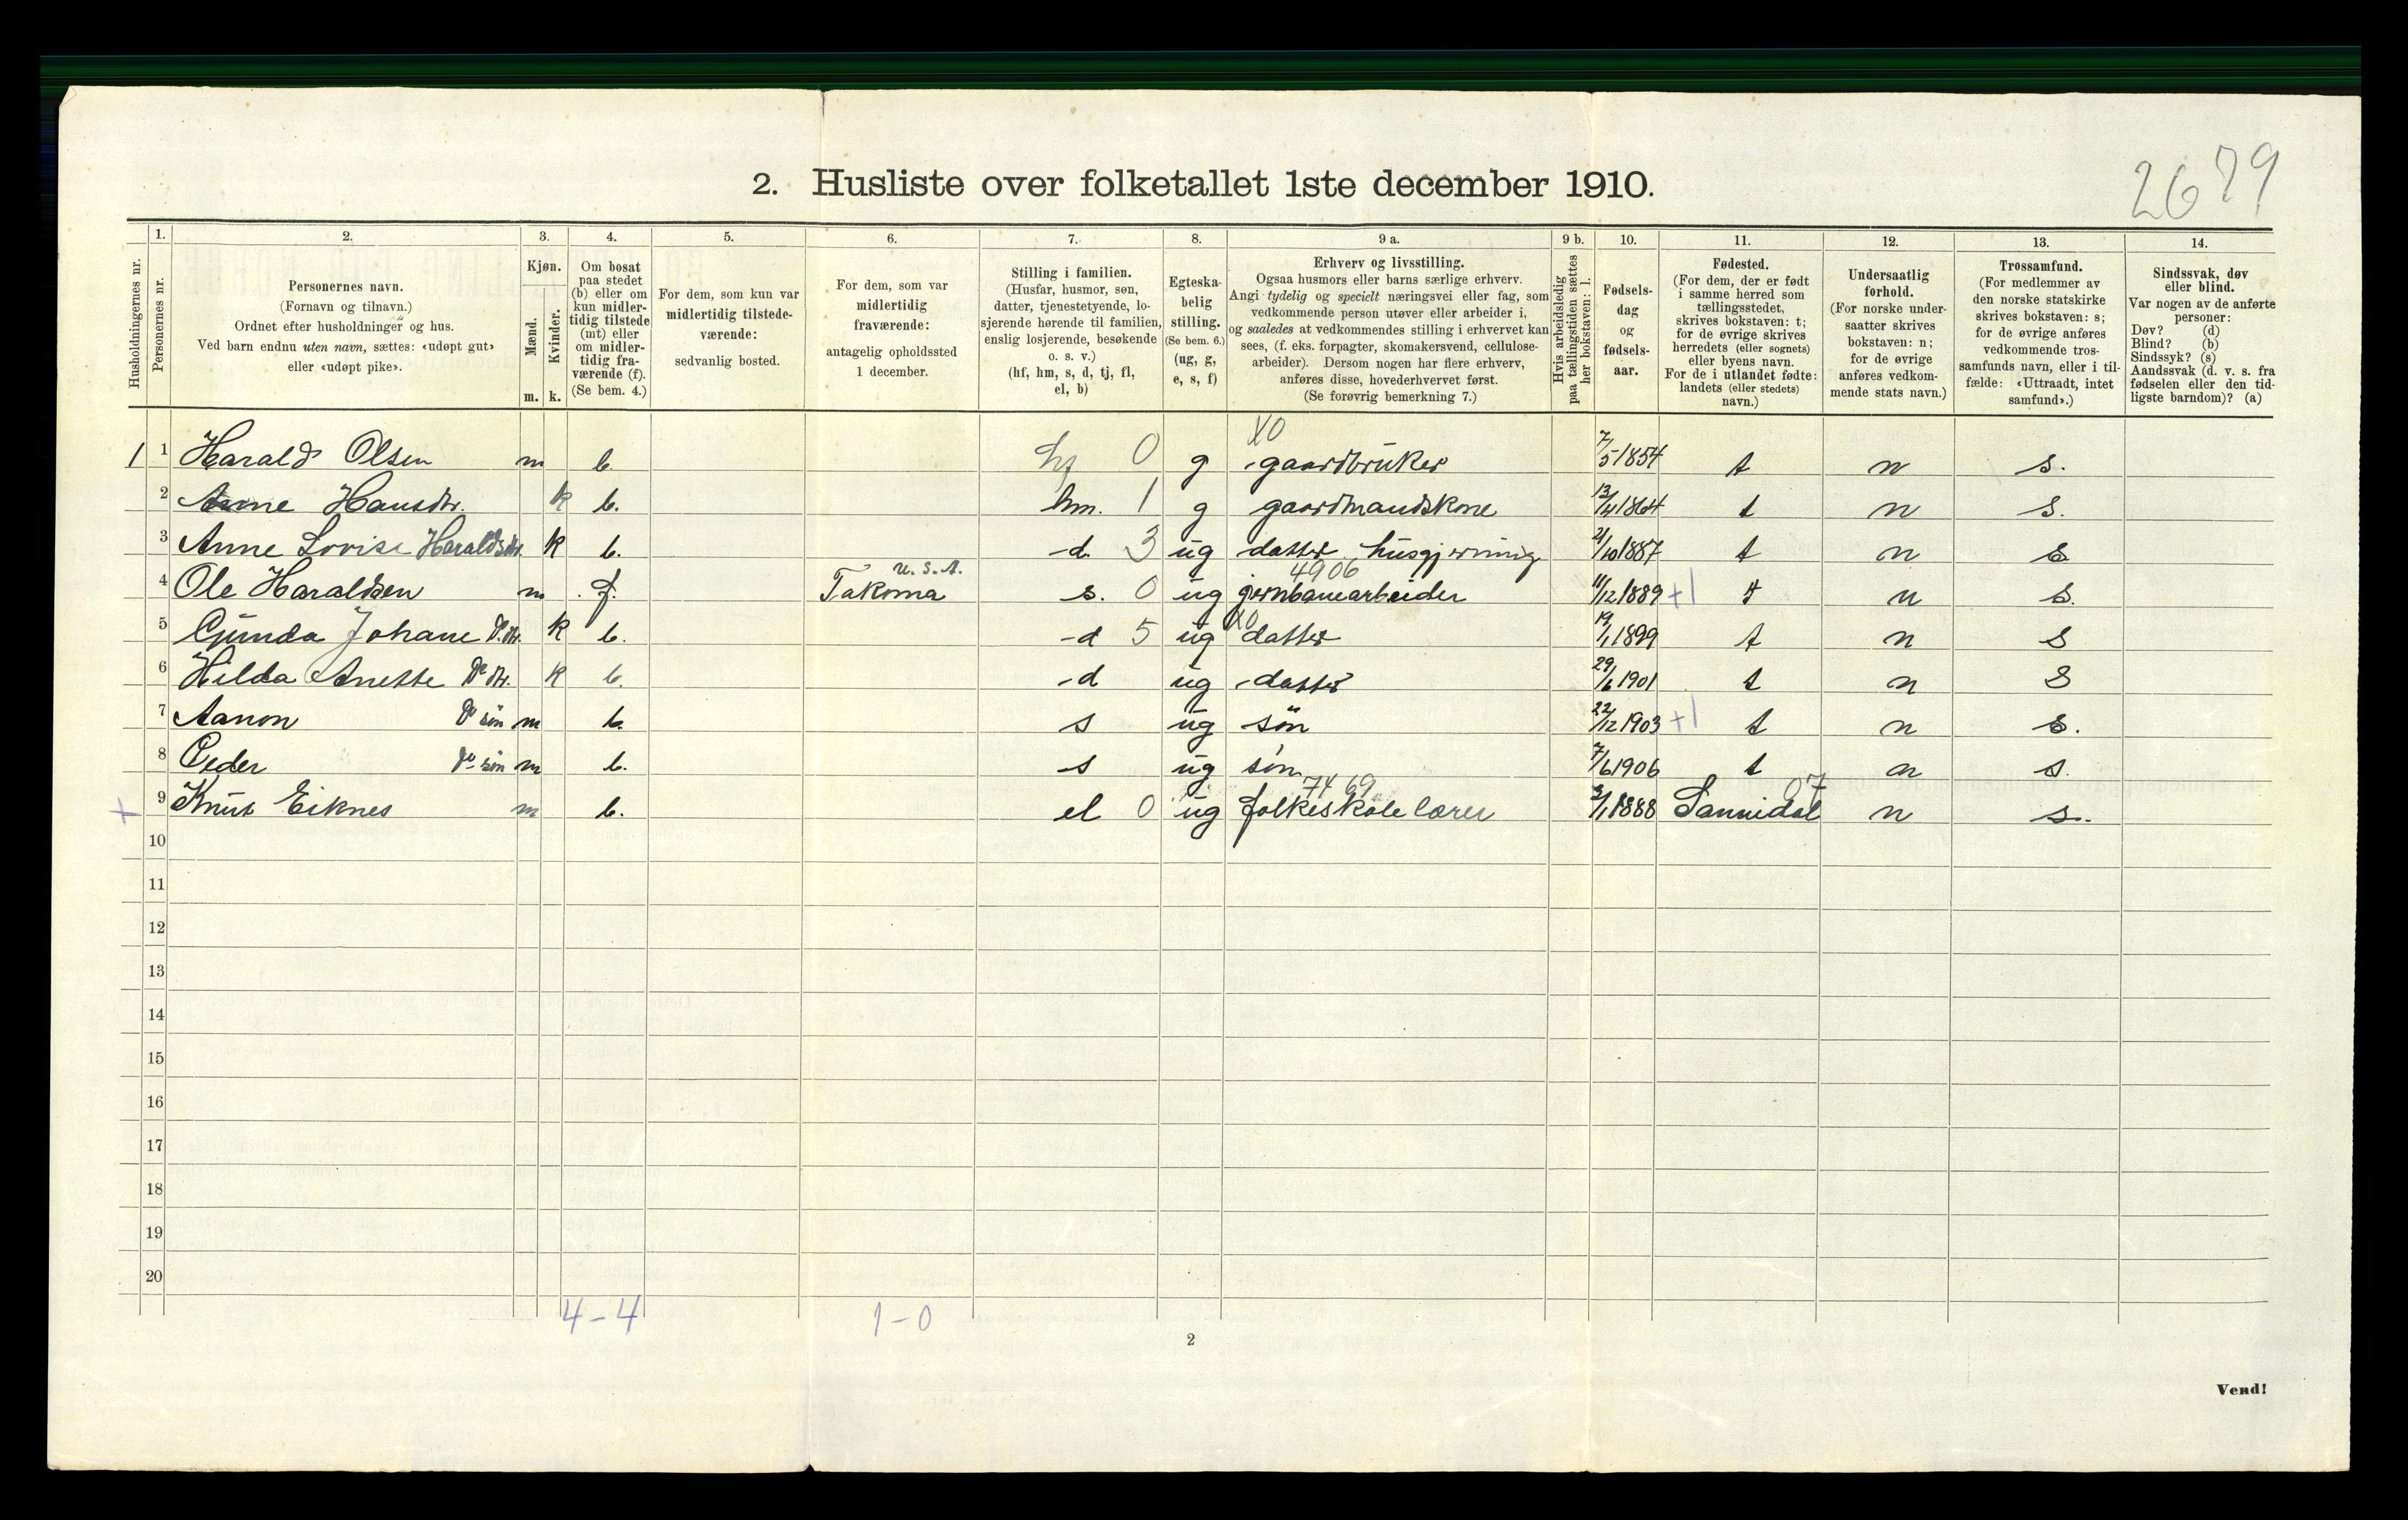 2679
2. Husliste over folketallet 1ste december 1910.
Husholdningernes nr.
1.
Personernes nr.
2.
Personernes navn.
(Fornavn og tilnavn.)
Ordnet efter husholdninger og hus.
Ved barn endnu uten navn, sættes: «udøpt gut»
eller «udøpt pike».
3.
Kjøn.
Mænd.
Kvinder.
m. k.
4.
Om bosat
paa stedet
(b) eller om
kun midler-
tidig tilstede
(mt) eller
om midler-
tidig fra-
værende (f).
(Se bem. 4.)
5.
For dem, som kun var
midlertidig tilstede-
værende:
sedvanlig bosted.
6.
For dem, som var
midlertidig
fraværende:
antagelig opholdssted
1 december.
7.
Stilling i familien.
(Husfar, husmor, søn,
datter, tjenestetyende, lo-
sjerende hørende til familien,
enslig losjerende, besøkende
o. s. v.)
(hf, hm, s, d, tj, fl,
el, b)
8.
Egteska-
belig
stilling.
(Se bem. 6.)
(ug, g,
e, s, f)
9 a.
Erhverv og livsstilling.
Ogsaa husmors eller barns særlige erhverv.
Angi tydelig og specielt næringsvei eller fag, som
vedkommende person utøver eller arbeider i,
og saaledes at vedkommendes stilling i erhvervet kan
sees, (f. eks. forpagter, skomakersvend, cellulose-
arbeider). Dersom nogen har flere erhverv,
anføres disse, hovederhvervet først.
(Se forøvrig bemerkning 7.)
9 b.
Hvis arbeidsledig
paa tællingstiden sættes
her bokstaven: l.
10.
Fødsels-
dag
og
fødsels-
aar.
11.
Fødested.
(For dem, der er født
i samme herred som
tællingsstedet,
skrives bokstaven: t;
for de øvrige skrives
herredets (eller sognets)
eller byens navn.
For de i utlandet fødte:
landets (eller stedets)
navn.)
12.
Undersaatlig
forhold.
(For norske under-
saatter skrives
bokstaven: n;
for de øvrige
anføres vedkom-
mende stats navn.)
13.
Trossamfund.
(For medlemmer av
den norske statskirke
skrives bokstaven: s;
for de øvrige anføres
vedkommende tros-
samfunds navn, eller i til-
fælde: «Uttraadt, intet
samfund».)
14.
Sindssvak, døv
eller blind.
Var nogen av de anførte
personer:
Døv? (d)
Blind? (b)
Sindssyk? (s)
Aandssvak (d. v. s. fra
fødselen eller den tid-
ligste barndom)? (a)
X0
1 1 Harald Olsen m b. hf 0 g gaardbruker 7/5 1854 t n s.
2 Anne Hansdtr. k b. hm. 1 g gaardmandskone 13/4 1864 t n s.
3 Anne Lovise Haraldsdtr. k b. d. 3 ug datter, husgjerning 21/10 1887 t n s
U. S. A. 4906
4 Ole Haraldsen m f. Takoma s. 0 ug jernbanearbeider 11/12 1889 +1 t n s.
X0
5 Gunda Johane Do. dtr. k b. d 5 ug datter 19/1 1899 t n s
6 Hilda Anette Do dtr. k b. d ug datter 29/6 1901 t n s
7 Aanon Do søn m b. s ug søn 22/12 1903 +1 t n s.
8 Peder Do søn m b. s ug søn 7/6 1906 t n s.
7469 07
+ 9 Knut Eiknes m b. el 0 ug folkeskolelærer 3/1 1888 Sannidal n s.
10
11
12
13
14
15
16
17
18
19
20
4-4 1-0
2
Vend!